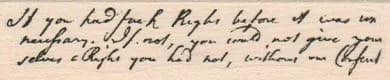 If you had such Right before it was un
necessary. If not, you could not give your
selves a Right you had not, without our Consent